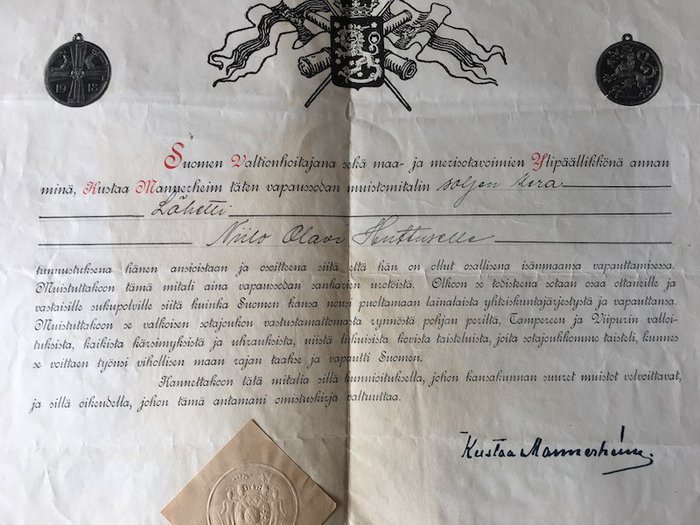 1918
Suomen Valtionhoitajana sekä maa- ja merisotavoimien Ylipäällikkönä annan
minä, Kustaa Mannerheim täten vapaussodan muistomitalin soljen kera
Lähetti
Niilo Olavi Huttuselle
tunnustuksena hänen ansioistaan ja osoitteena siitä että hän on ollut osallisena isänmaansa vapauttamisessa.
Muistuttakoon tämä mitali aina vapaussodan sankarien urotöistä. Olkoon se todisteena sotaan osaa ottaneille ja
vastaisille sukupolville siitä kuinka Suomen kansa nousi puoltamaan lainalaista yhteiskuntajärjestystä ja vapauttansa.
Muistuttakoon se valkoisen sotajoukon vastustamattomasta rynnöstä pohjan periltä, Tampereen ja Viipurin valloi-
tuksista, kaikista kärsimyksistä ja uhrauksista, niistä lukuisista kovista taisteluista, joita sotajoukkomme taisteli, kunnes
se voittaen työnsi vihollisen maan rajan taakse ja vapautti Suomen.
Kannettakoon tätä mitalia sillä kunnioituksella, johon kansakunnan suuret muistot velvoittavat,
ja sillä oikeudella, johon tämä antamani omistuskirja valtuuttaa.
Kustaa Mannerheim.